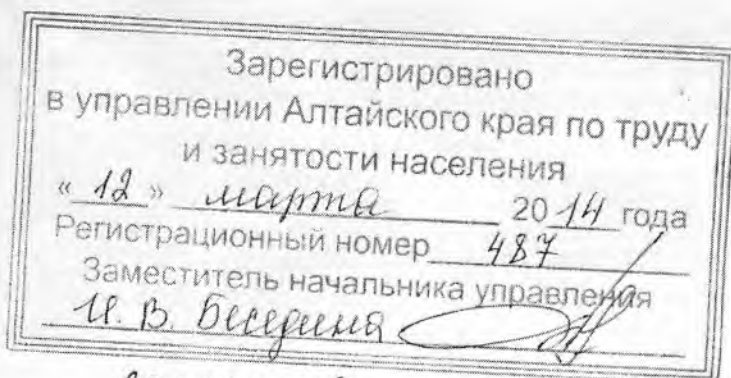 Зарегистрировано
в управлении Алтайского края по труду
и занятости населения
« 12 » марта 2014 года
Регистрационный номер 487
Заместитель начальника управления
И. В. Беседина